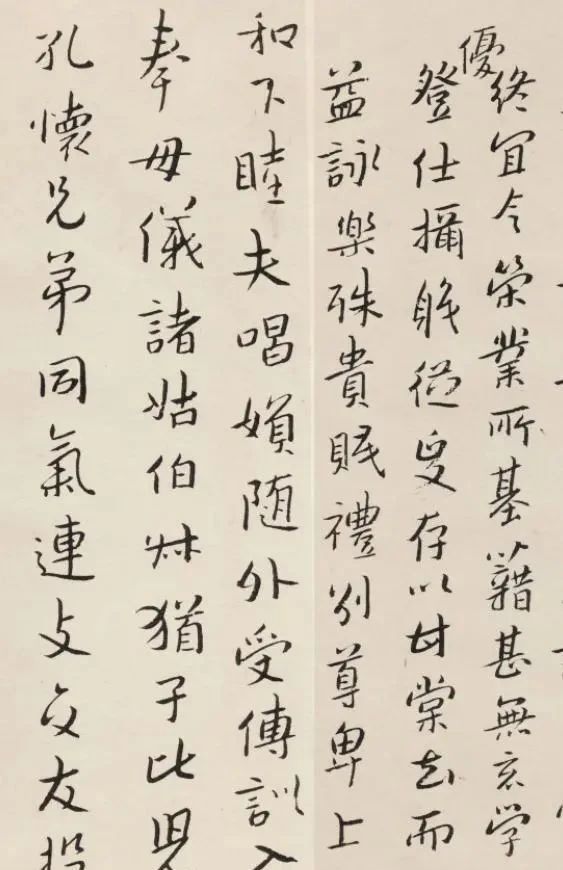 終宜令榮業所基籍甚無竟学
優
登仕攝職從政存以甘棠去而
益詠樂殊貴賤禮別尊卑上
和下睦夫唱婦随外受傅訓入
奉母儀諸姑伯叔猶子比兒
孔懷兄弟同氣連枝交友投